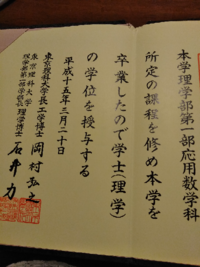 本学理学部第一部応用数学科
所定の課程を修め本学を
卒業したので学士(理学)
の学位を授与する
平成十五年三月二十日
東京理科大学長 工学博士 岡村弘之
東京理科大学
理学部第一部学部長 理学博士 石井力